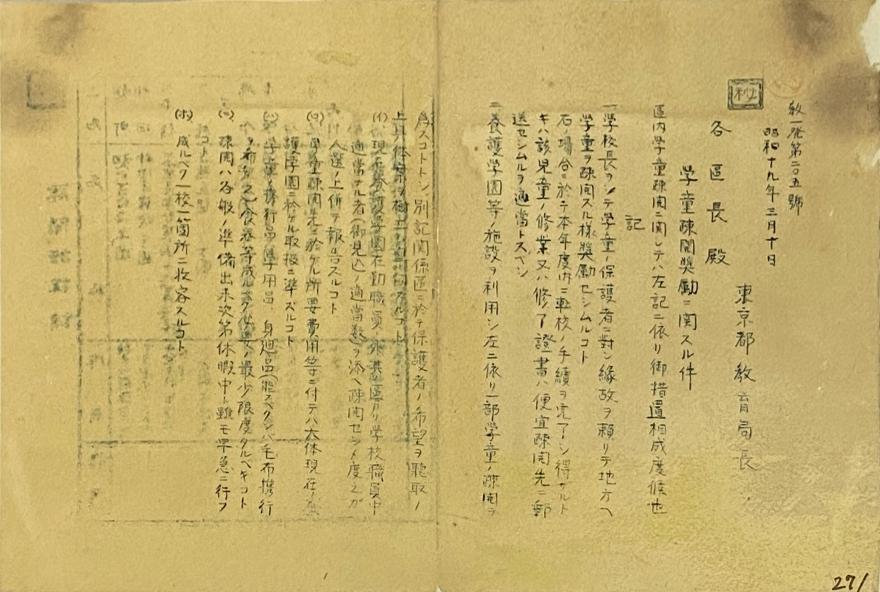 秘
教一発第二〇五號
昭和十九年三月十日
東京都教育局長
各區長殿
學童疎開奨勵ニ関スル件
區内學童疎開ニ関シテハ左記ニ依リ御措置相成度候也
記
一學校長ヲシテ學童ノ保護者ニ對シ緣故ヲ賴リテ地方ヘ
學童ヲ疎開スル様奨勵セシムルコト
右ノ場合ニ於テ本年度内ニ転校ノ手續ヲ完了シ得ザルト
キハ該児童ノ修業又ハ修了證書ハ便宜疎開先ニ郵
送セシムルヲ適當トスベシ
二養護學園等ノ施設ヲ利用シ左ニ依リ一部學童ノ疎開ヲ
為スコトトシ別記関係區ニ於テ保護者ノ希望ヲ聽取ノ
上具体案ヲ
(イ)現在養護學園在勤職員ノ外其ノ區ヨリ學校職員中
適當ナル者御見込ノ適當数ヲ添ヘ疎開セシメ度之ガ
人選ノ上併テ報告スルコト
(ロ)學童疎開先ニ於ケル所要費用等ニ付テハ大体現在ノ養
護學園ニ於ケル取扱ニ準ズルコト
(ハ)學童ノ携行品ハ學用品、身廻品(能スベクンバ毛布携行
ヲ希望ス)食器等成ルベク必要ノ最少限度タルベキコト
(ニ)疎開ハ各般ノ準備出来次第休暇中ト雖モ早急ニ行フ
コト
(ホ)成ルベク一校一箇所ニ收容スルコト
271